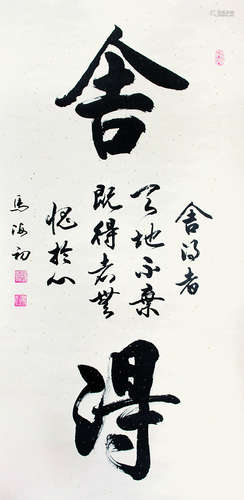 舍
得
舍得者
天地不棄
既得者無
愧於心
馬海初